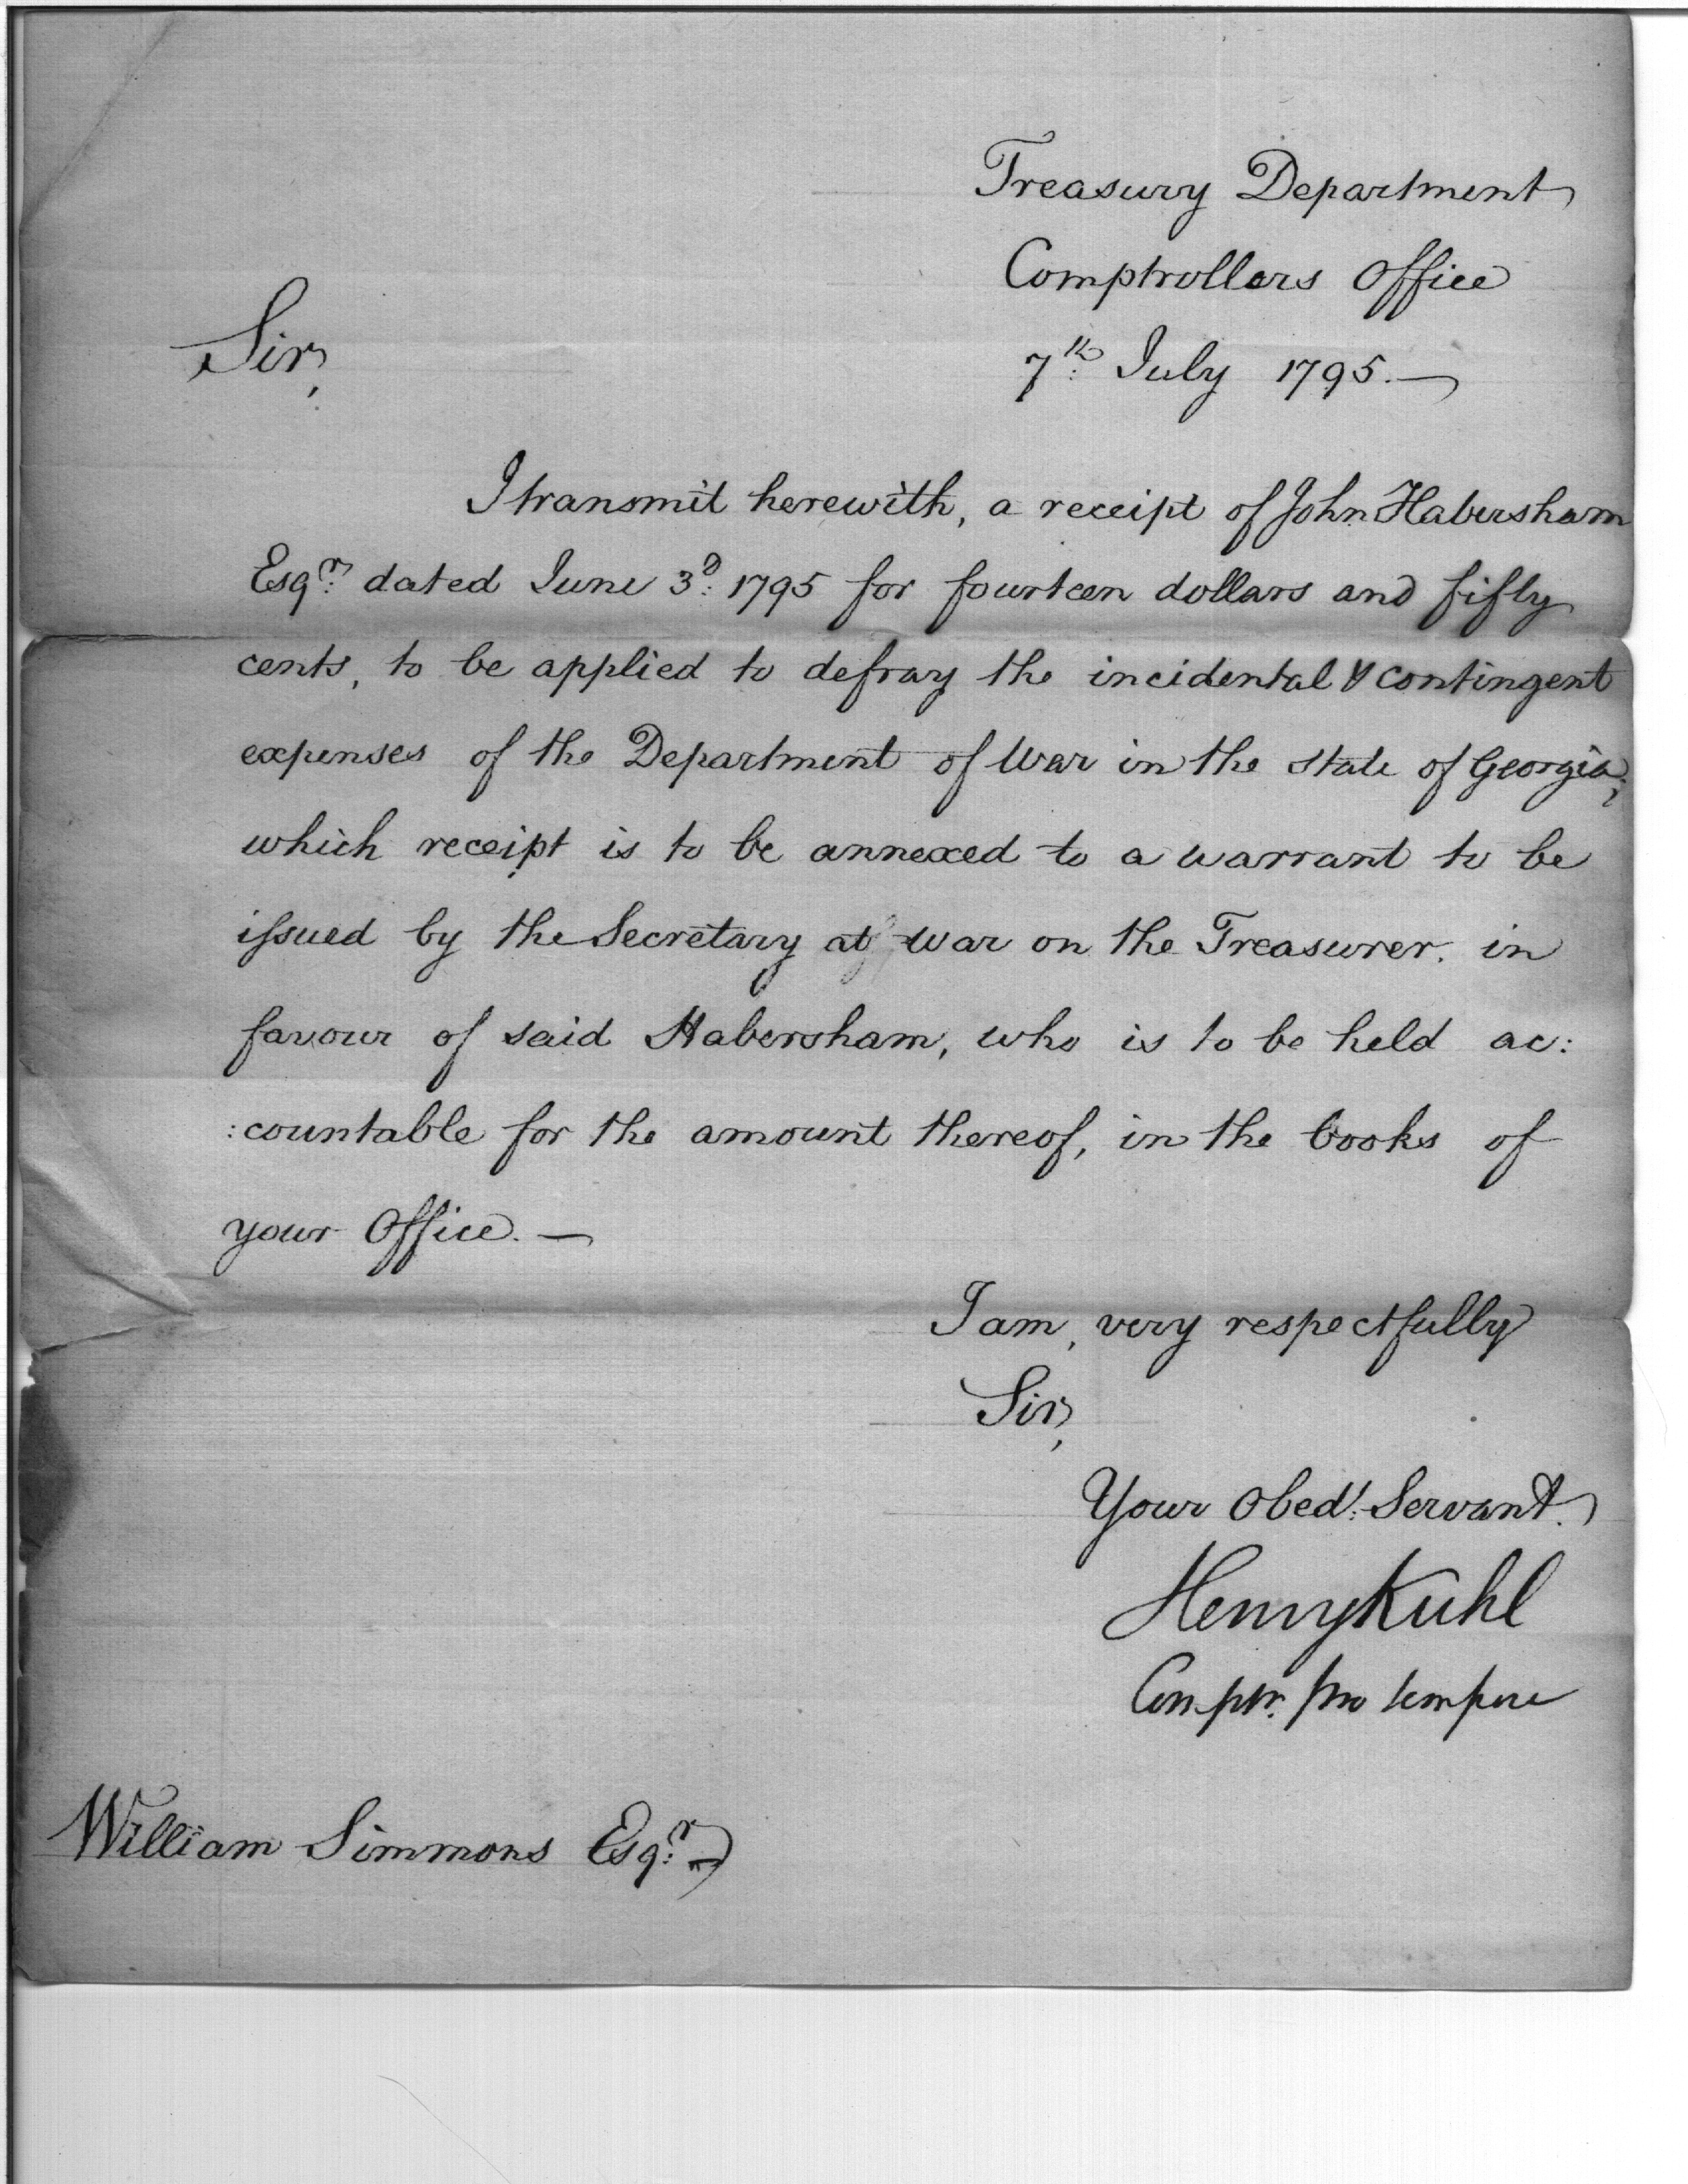 Treasury Department
Comptrollers Office
Sir,
7th: July 1795.—
I transmit herewith, a receipt of John Habersham
Esqr: dated June 3d: 1795 for fourteen dollars and fifty
cents, to be applied to defray the incidental & contingent
expenses of the Department of War in the state of Georgia;
which receipt is to be annexed to a warrant to be
issued by the Secretary at war on the Treasurer. in
favour of said Habersham, who is to be held ac:
:countable for the amount thereof, in the books of
your Office.—
I am, very respectfully
Sir,
Your Obedt: Servant.
Henry Kuhl
Comptr. pro tempore
William Simmons Esqr: